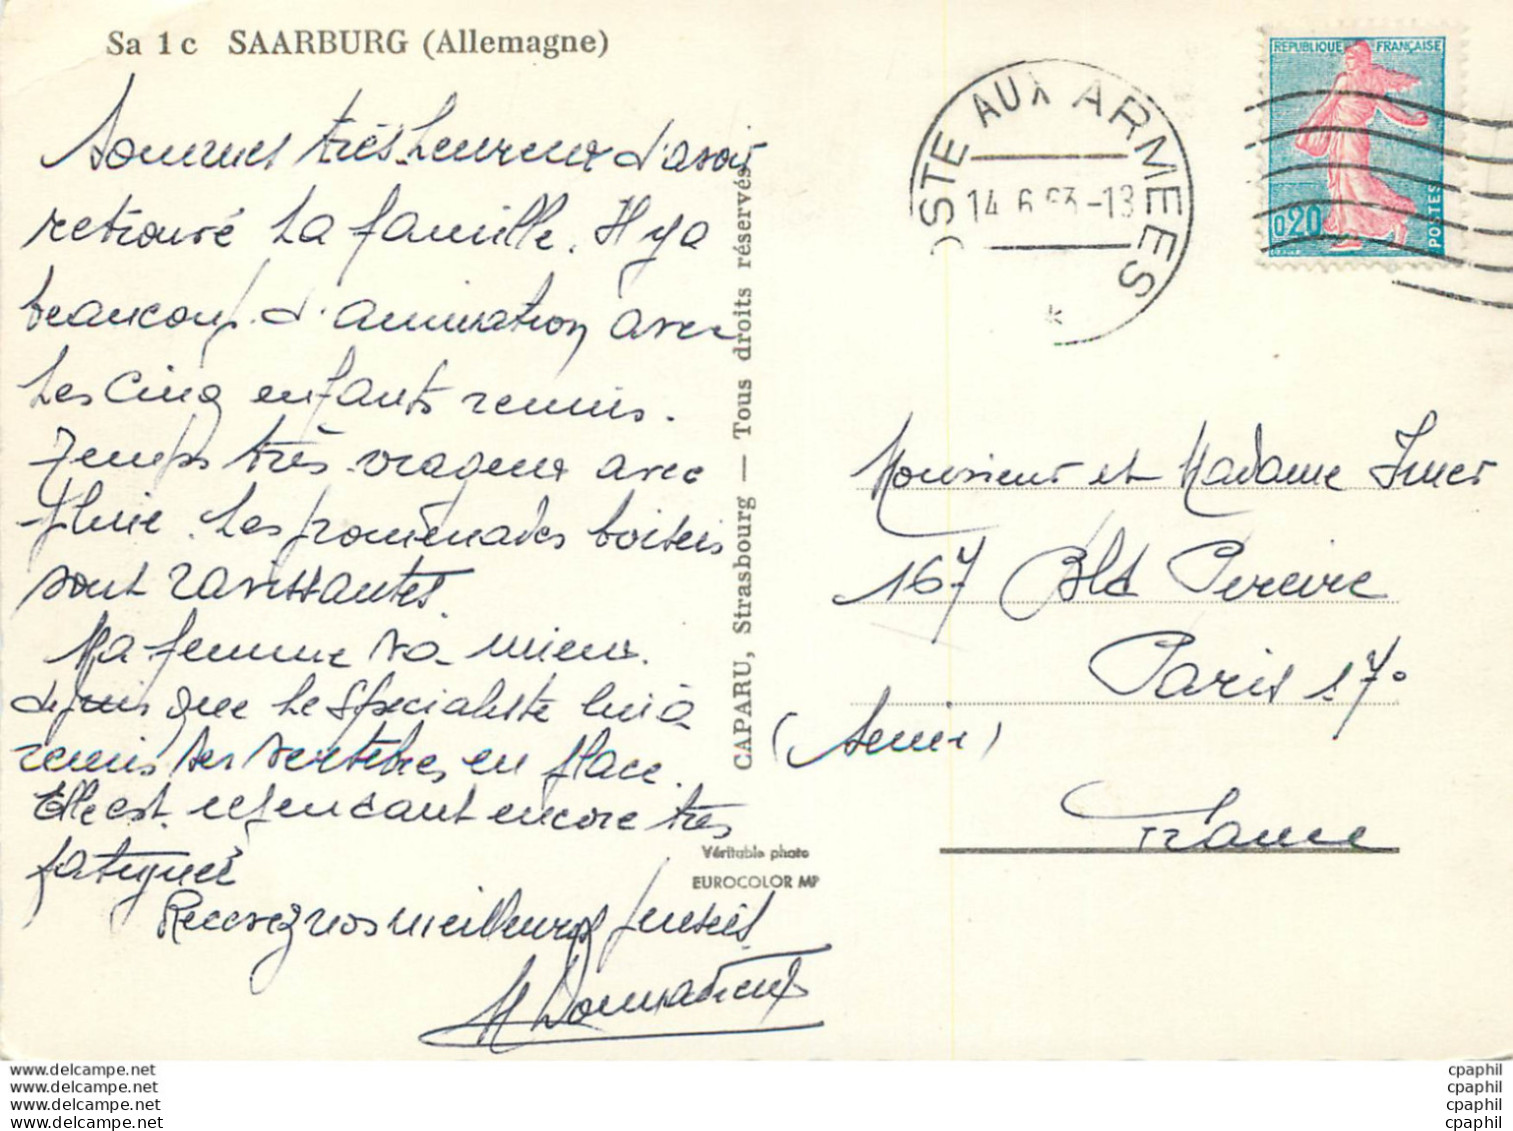 Sa 1 c SAARBURG (Allemagne)
Sommes très heureux d'avoir
retrouvé la famille. Il y a
beaucoup d'animation avec
les cinq enfants réunis.
Temps très orageux avec
pluie. Les promenades boisées
sont ravissantes.
Ma femme va mieux
depuis que le spécialiste lui a
remis ses vertèbres en place.
Elle est cependant encore très
fatiguée
Recevez nos meilleures pensées
CAPARU, Strasbourg — Tous droits réservés
Véritable photo
EUROCOLOR MP
OSTE AUX ARMEES
14.6.63-18
*
REPUBLIQUE FRANÇAISE
0,20
POSTES
Monsieur et Madame
167 Bld Pereire
Paris 17°
(Seine)
France
www.delcampe.net
www.delcampe.net
www.delcampe.net
www.delcampe.net
cpaphil
cpaphil
cpaphil
cpaphil